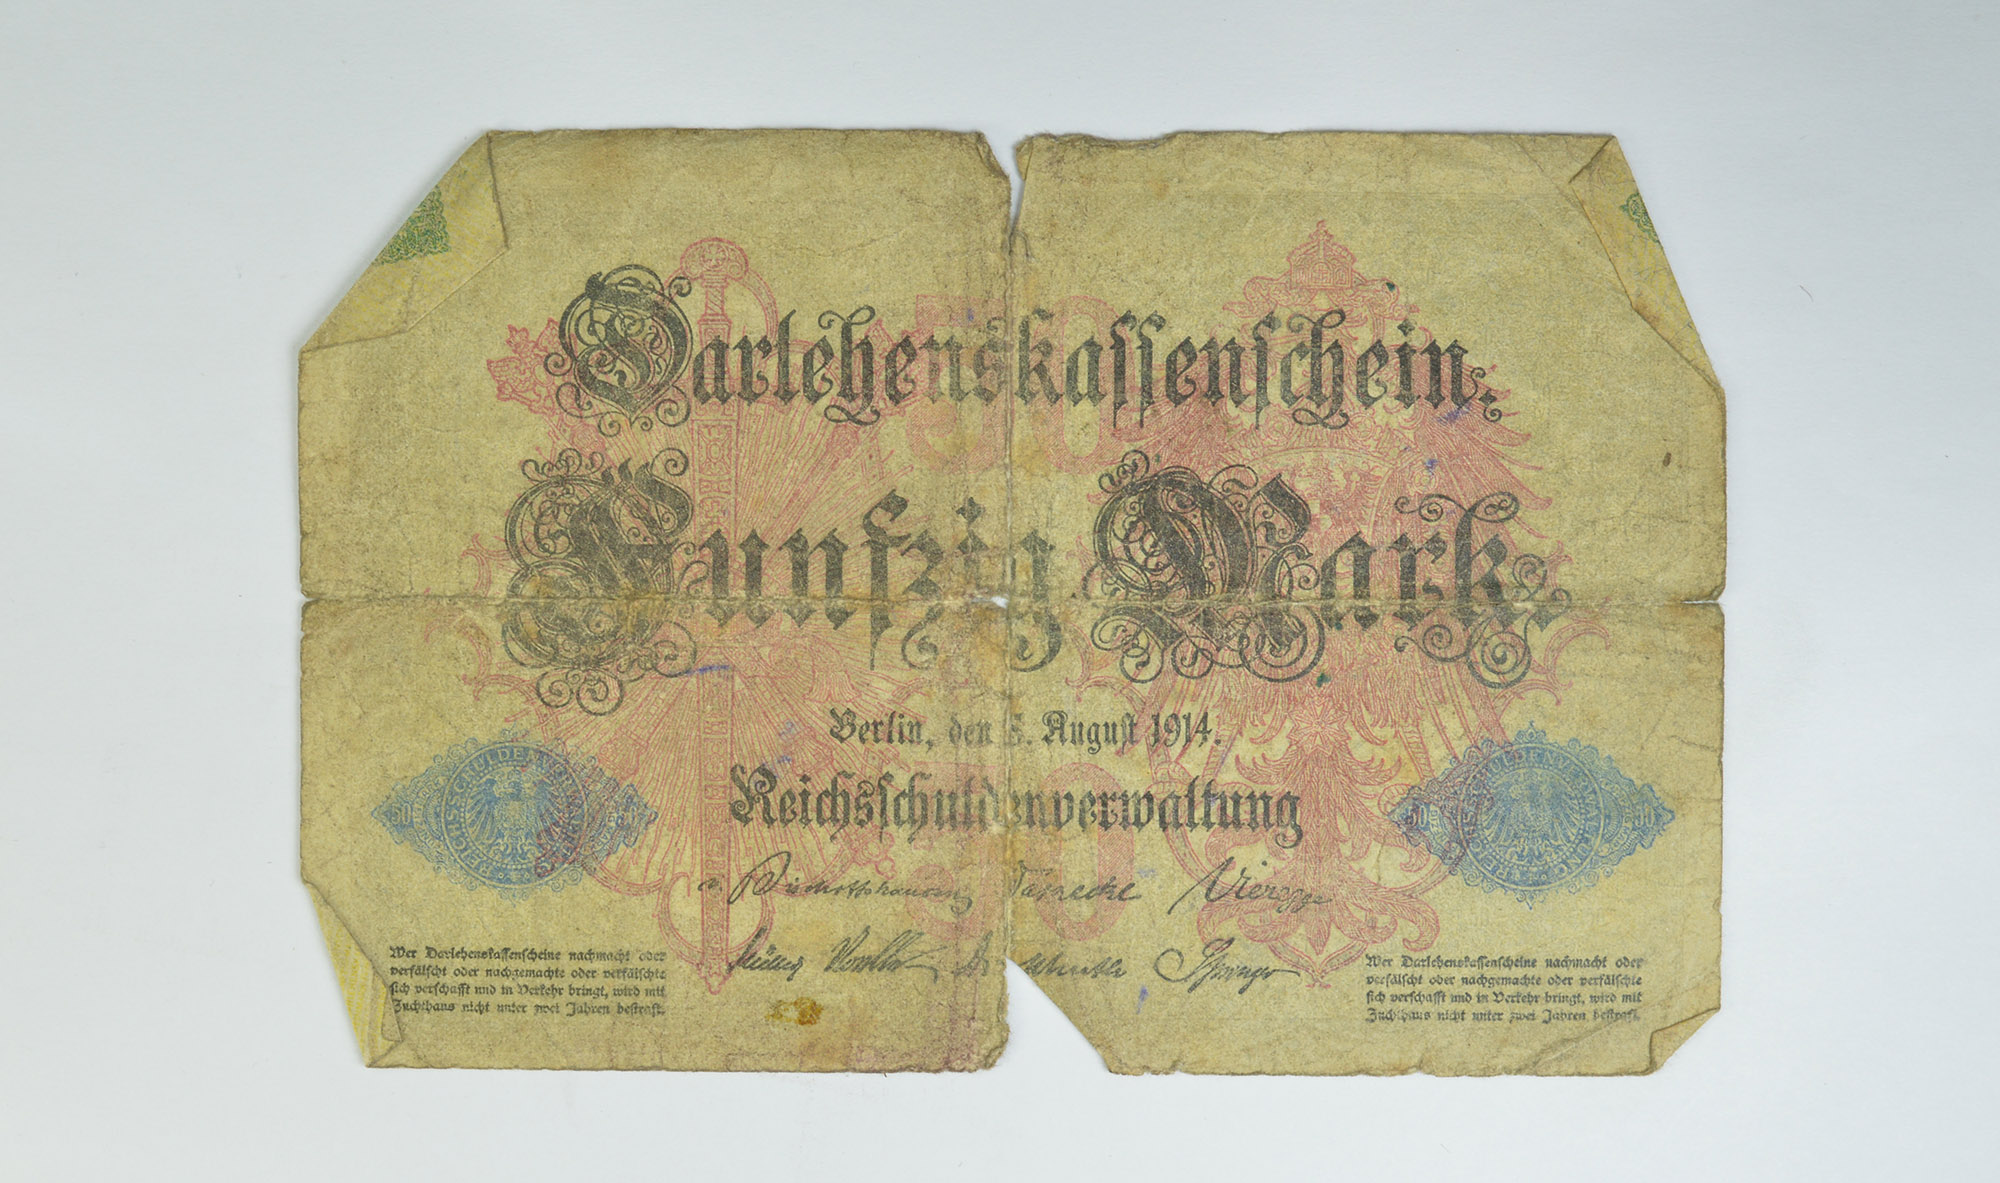 Darlehenskassenschein.
50
Fünfzig Mark.
Berlin, den 5. August 1914.
Reichsschuldenverwaltung
50
v. Bischoffshausen Warnecke Vieregge
Müller Springer
REICHSSCHULDENVERWALTUNG
50 50
REICHSSCHULDENVERWALTUNG
50 50
Wer Darlehenskassenscheine nachmacht oder
verfälscht oder nachgemachte oder verfälschte
sich verschafft und in Verkehr bringt, wird mit
Zuchthaus nicht unter zwei Jahren bestraft.
Wer Darlehenskassenscheine nachmacht oder
verfälscht oder nachgemachte oder verfälschte
sich verschafft und in Verkehr bringt, wird mit
Zuchthaus nicht unter zwei Jahren bestraft.